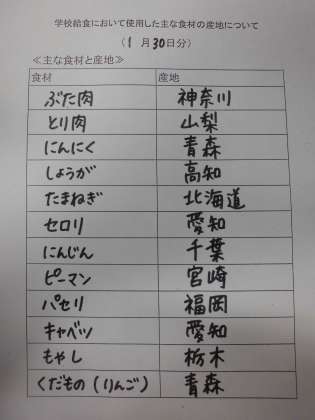 学校給食において使用した主な食材の産地について
(1月30日分)
≪主な食材と産地≫
食材 産地
ぶた肉 神奈川
とり肉 山梨
にんにく 青森
しょうが 高知
たまねぎ 北海道
セロリ 愛知
にんじん 千葉
ピーマン 宮崎
パセリ 福岡
キャベツ 愛知
もやし 栃木
くだもの(りんご) 青森